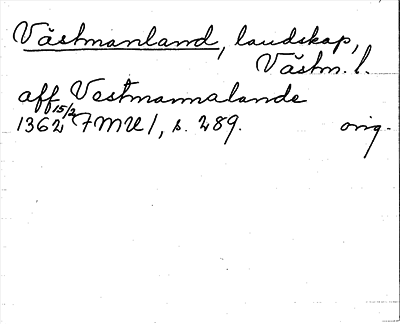 Västmanland, landskap,
Västm. l.
aff Vestmannalande
1362 15/2 FMU 1, s. 289. orig.